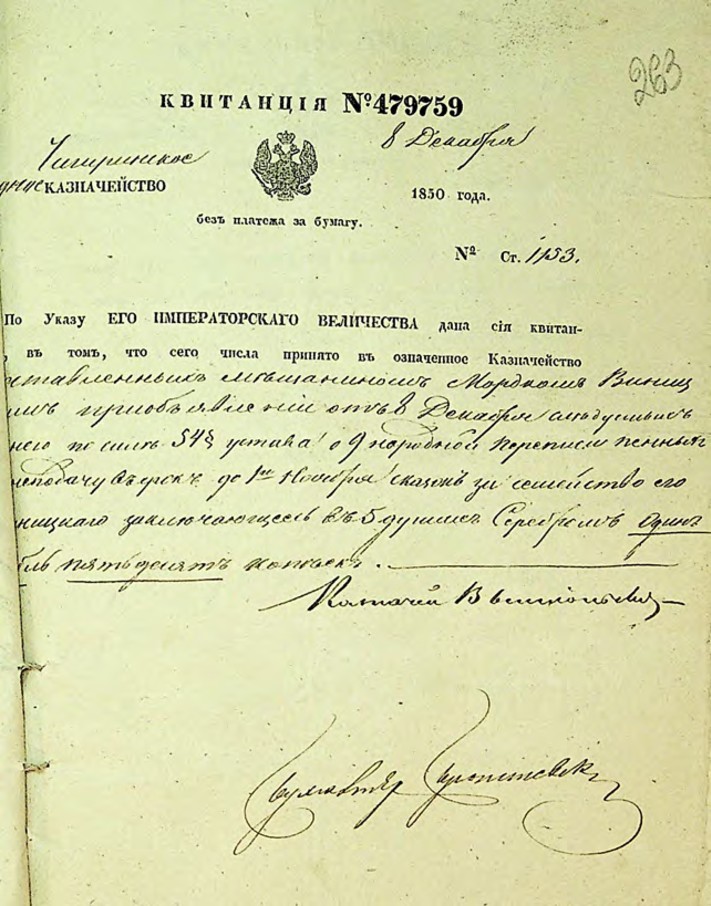 263
КВИТАНЦІЯ №479759
8 Декабря
Чигиринское
КАЗНАЧЕЙСТВО
1850 года.
безъ платежа за бумагу.
№ Ст. 1153.
По Указу ЕГО ИМПЕРАТОРСКАГО ВЕЛИЧЕСТВА дана сія квитан-
, въ томъ, что сего числа принято въ означенное Казначейство
ставленныхъ мѣщаниномъ Мордкомъ Винниц
имъ приобъявленіи отъ 8 Декабря слѣдуемыхъ
него по силѣ 54§ устава о 9 народной переписи пенныхъ
неподачу въ срокъ до 1го Ноября сказокъ за семейство его
ницкаго заключающееся въ 5 душахъ Серебромъ Одинъ
бль пятьдесятъ копѣекъ.
Казначей
Бухгалтеръ